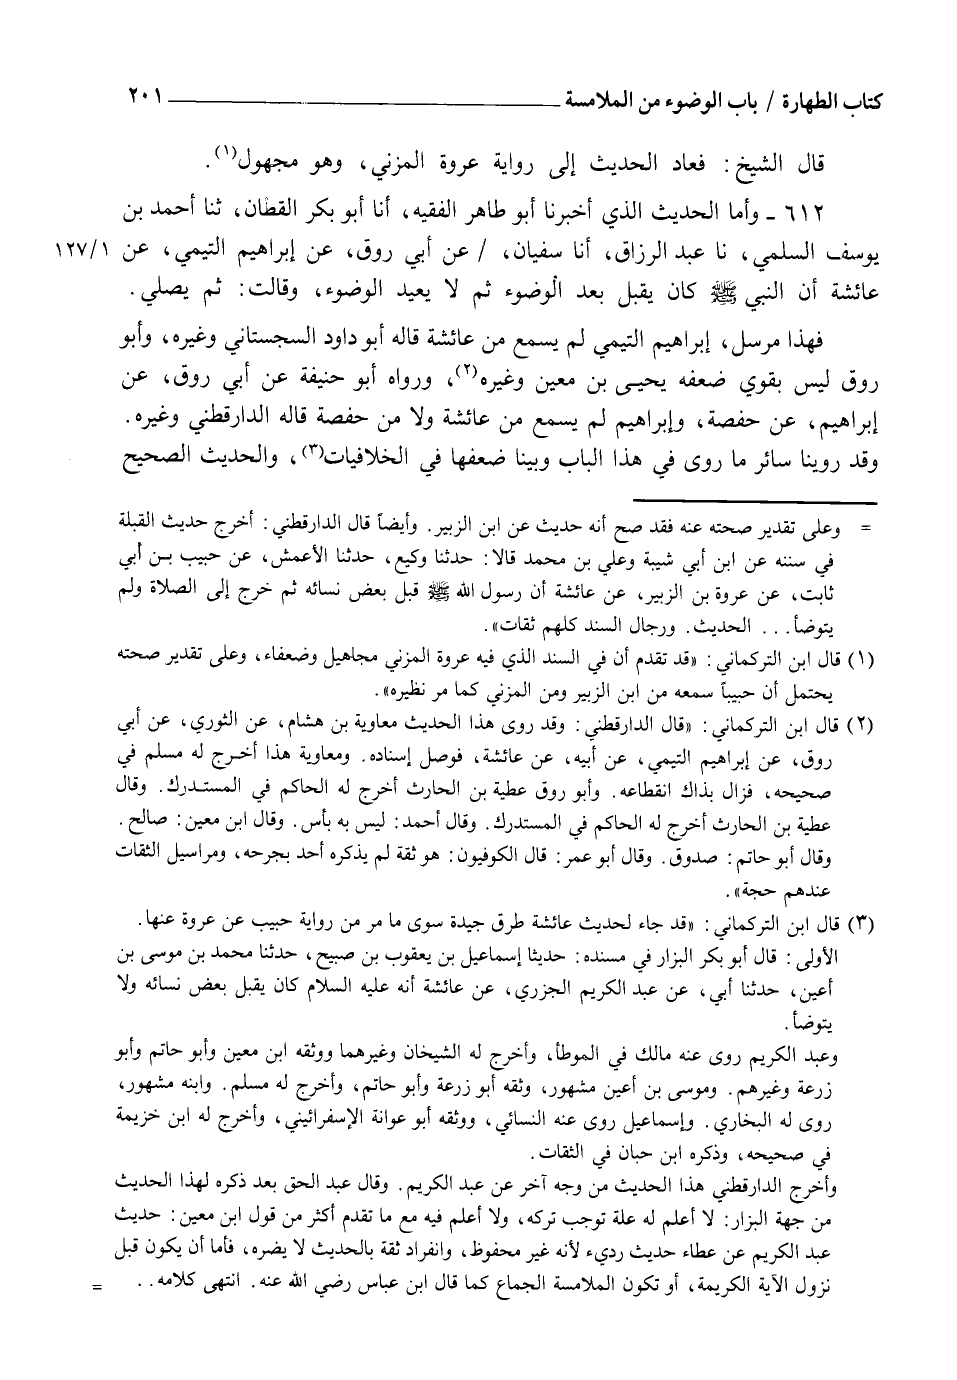 كتاب الطهارة / باب الوضوء من الملامسة ٢٠١
قال الشيخ: فعاد الحديث إلى رواية عروة المزني، وهو مجهول(١).
٦١٢ ـ وأما الحديث الذي أخبرنا أبو طاهر الفقيه، أنا أبو بكر القطان، ثنا أحمد بن
يوسف السلمي، نا عبد الرزاق، أنا سفيان، / عن أبي روق، عن إبراهيم التيمي، عن ١٢٧/١
عائشة أن النبي ﷺ كان يقبل بعد الوضوء ثم لا يعيد الوضوء، وقالت: ثم يصلي.
فهذا مرسل، إبراهيم التيمي لم يسمع من عائشة قاله أبو داود السجستاني وغيره، وأبو
روق ليس بقوي ضعفه يحيى بن معين وغيره(٢)، ورواه أبو حنيفة عن أبي روق، عن
إبراهيم، عن حفصة، وإبراهيم لم يسمع من عائشة ولا من حفصة قاله الدارقطني وغيره.
وقد روينا سائر ما روى في هذا الباب وبينا ضعفها في الخلافيات(٣)، والحديث الصحيح
= وعلى تقدير صحته عنه فقد صح أنه حديث عن ابن الزبير. وأيضاً قال الدارقطني: أخرج حديث القبلة
في سننه عن ابن أبي شيبة وعلي بن محمد قالا: حدثنا وكيع، حدثنا الأعمش، عن حبيب بن أبي
ثابت، عن عروة بن الزبير، عن عائشة أن رسول الله ﷺ قبل بعض نسائه ثم خرج إلى الصلاة ولم
يتوضأ... الحديث. ورجال السند كلهم ثقات».
(١) قال ابن التركماني: «قد تقدم أن في السند الذي فيه عروة المزني مجاهيل وضعفاء، وعلى تقدير صحته
يحتمل أن حبيباً سمعه من ابن الزبير ومن المزني كما مر نظيره».
(٢) قال ابن التركماني: «قال الدارقطني: وقد روى هذا الحديث معاوية بن هشام، عن الثوري، عن أبي
روق، عن إبراهيم التيمي، عن أبيه، عن عائشة، فوصل إسناده. ومعاوية هذا أخرج له مسلم في
صحيحه، فزال بذاك انقطاعه. وأبو روق عطية بن الحارث أخرج له الحاكم في المستدرك. وقال
عطية بن الحارث أخرج له الحاكم في المستدرك. وقال أحمد: ليس به بأس. وقال ابن معين: صالح.
وقال أبو حاتم: صدوق. وقال أبو عمر: قال الكوفيون: هو ثقة لم يذكره أحد بجرحه، ومراسيل الثقات
عندهم حجة».
(٣) قال ابن التركماني: «قد جاء لحديث عائشة طرق جيدة سوى ما مر من رواية حبيب عن عروة عنها.
الأولى: قال أبو بكر البزار في مسنده: حديثا إسماعيل بن يعقوب بن صبيح، حدثنا محمد بن موسى بن
أعين، حدثنا أبي، عن عبد الكريم الجزري، عن عائشة أنه عليه السلام كان يقبل بعض نسائه ولا
يتوضأ.
وعبد الكريم روى عنه مالك في الموطأ، وأخرج له الشيخان وغيرهما ووثقه ابن معين وأبو حاتم وأبو
زرعة وغيرهم. وموسى بن أعين مشهور، وثقه أبو زرعة وأبو حاتم، وأخرج له مسلم. وابنه مشهور،
روى له البخاري. وإسماعيل روى عنه النسائي، ووثقه أبو عوانة الإسفرائيني، وأخرج له ابن خزيمة
في صحيحه، وذكره ابن حبان في الثقات.
وأخرج الدارقطني هذا الحديث من وجه آخر عن عبد الكريم. وقال عبد الحق بعد ذكره لهذا الحديث
من جهة البزار: لا أعلم له علة توجب تركه، ولا أعلم فيه مع ما تقدم أكثر من قول ابن معين: حديث
عبد الكريم عن عطاء حديث رديء لأنه غير محفوظ، وانفراد ثقة بالحديث لا يضره، فأما أن يكون قبل
نزول الآية الكريمة، أو تكون الملامسة الجماع كما قال ابن عباس رضي الله عنه. انتهى كلامه.. =